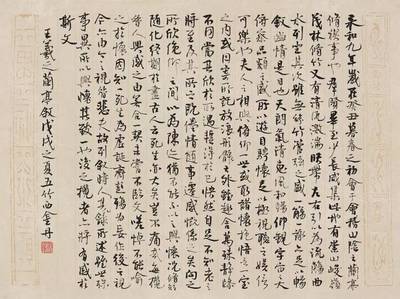 永和九年歲在癸丑暮春之初會于會稽山陰之蘭亭
脩稧事也群賢畢至少長咸集此地有崇山峻嶺
茂林脩竹又有清流激湍映帶左右引以為流觴曲
水列坐其次雖無絲竹管弦之盛一觴一詠亦足以暢
敘幽情是日也天朗氣清惠風和暢仰觀宇宙之大
俯察品類之盛所以遊目騁懷足以極視聽之娛信
可樂也夫人之相與俯仰一世或取諸懷抱悟言一室
之內或因寄所託放浪形骸之外雖趣舍萬殊靜躁
不同當其欣於所遇暫得於己怏然自足不知老之
將至及其所之既倦情隨事遷感慨係之矣向之
所欣俛仰之間以為陳迹猶不能不以之興懷況脩短
隨化終期於盡古人云死生亦大矣豈不痛哉每攬
昔人興感之由若合一契未嘗不臨文嗟悼不能喻
之於懷固知一死生為虛誕齊彭殤為妄作後之視
今亦由今之視昔悲夫故列敘時人錄其所述雖世殊
事異所以興懷其致一也後之攬者亦將有感於
斯文
王羲之蘭亭敘戊戌之夏五竹西金丹